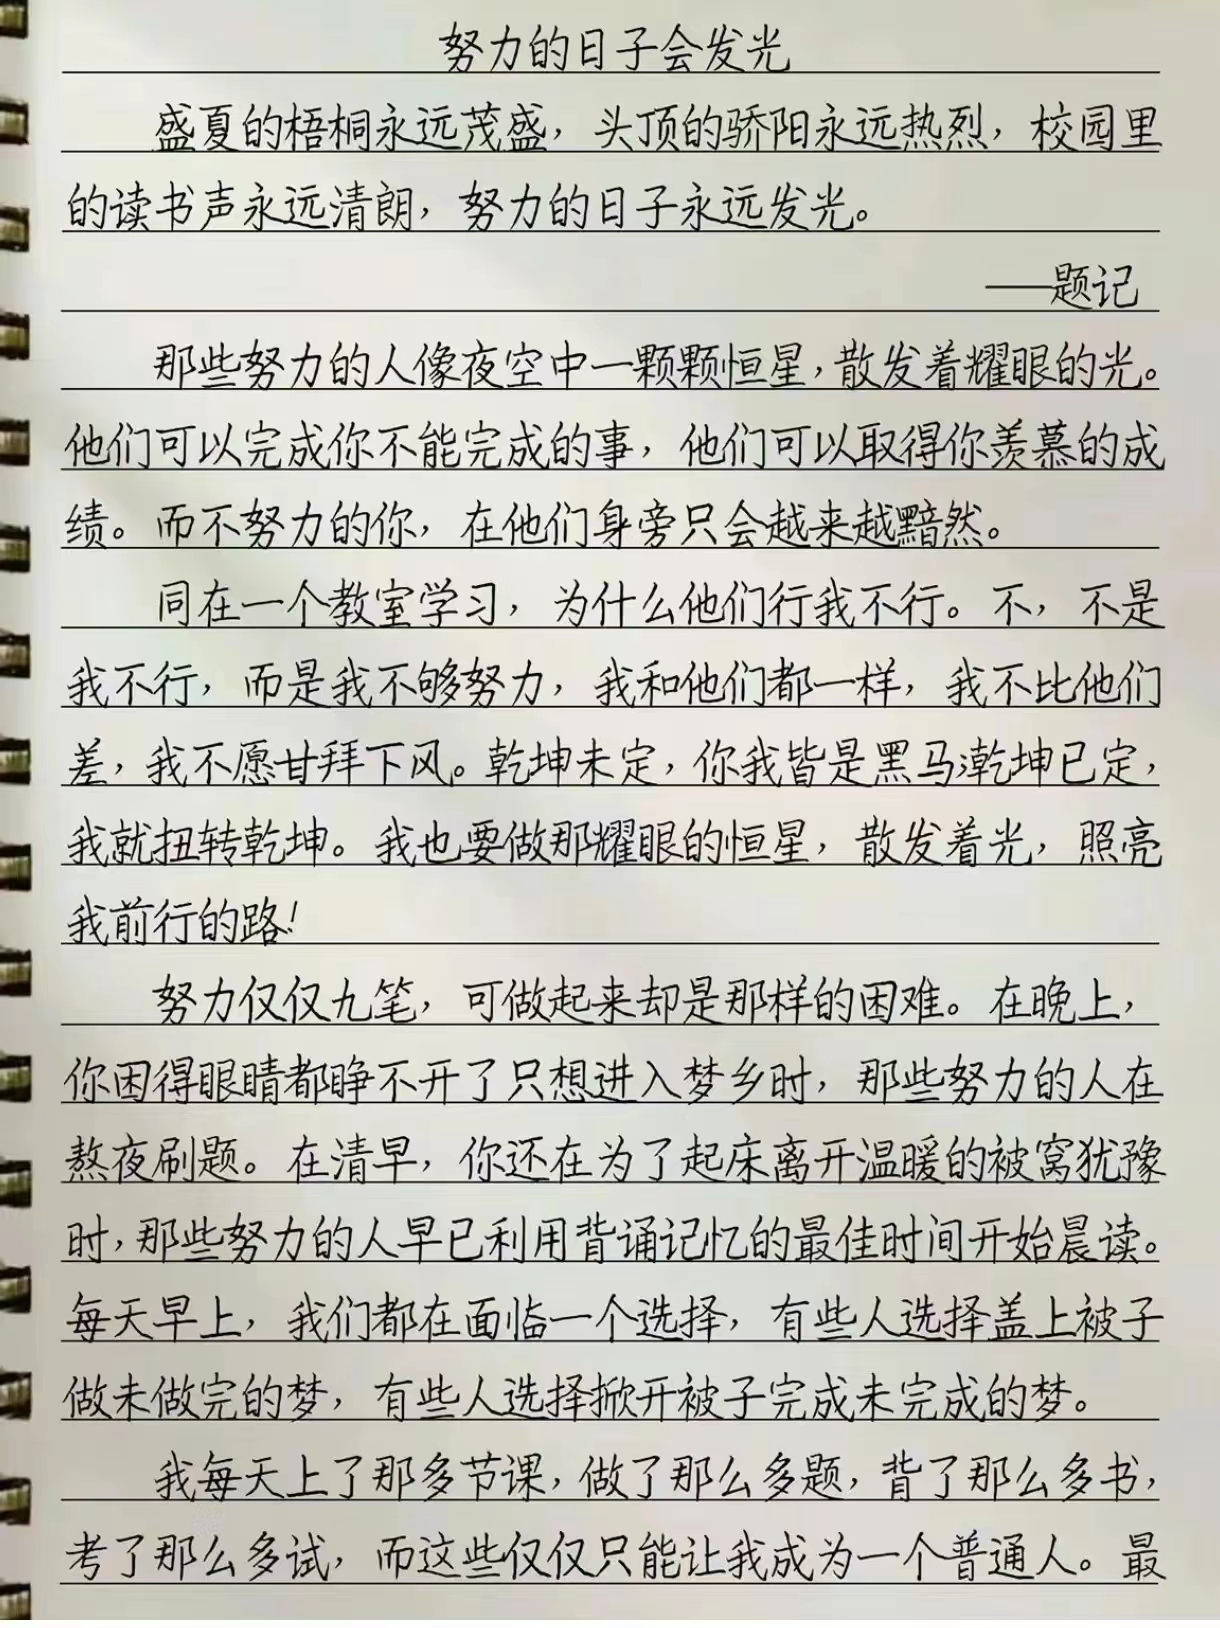 努力的日子会发光
盛夏的梧桐永远茂盛，头顶的骄阳永远热烈，校园里
的读书声永远清朗，努力的日子永远发光。
——题记
那些努力的人像夜空中一颗颗恒星，散发着耀眼的光。
他们可以完成你不能完成的事，他们可以取得你羡慕的成
绩。而不努力的你，在他们身旁只会越来越黯然。
同在一个教室学习，为什么他们行我不行。不，不是
我不行，而是我不够努力，我和他们都一样，我不比他们
差，我不愿甘拜下风。乾坤未定，你我皆是黑马；乾坤已定，
我就扭转乾坤。我也要做那耀眼的恒星，散发着光，照亮
我前行的路！
努力仅仅九笔，可做起来却是那样的困难。在晚上，
你困得眼睛都睁不开了只想进入梦乡时，那些努力的人在
熬夜刷题。在清早，你还在为了起床离开温暖的被窝犹豫
时，那些努力的人早已利用背诵记忆的最佳时间开始晨读。
每天早上，我们都在面临一个选择，有些人选择盖上被子
做未做完的梦，有些人选择掀开被子完成未完成的梦。
我每天上了那多节课，做了那么多题，背了那么多书，
考了那么多试，而这些仅仅只能让我成为一个普通人。最